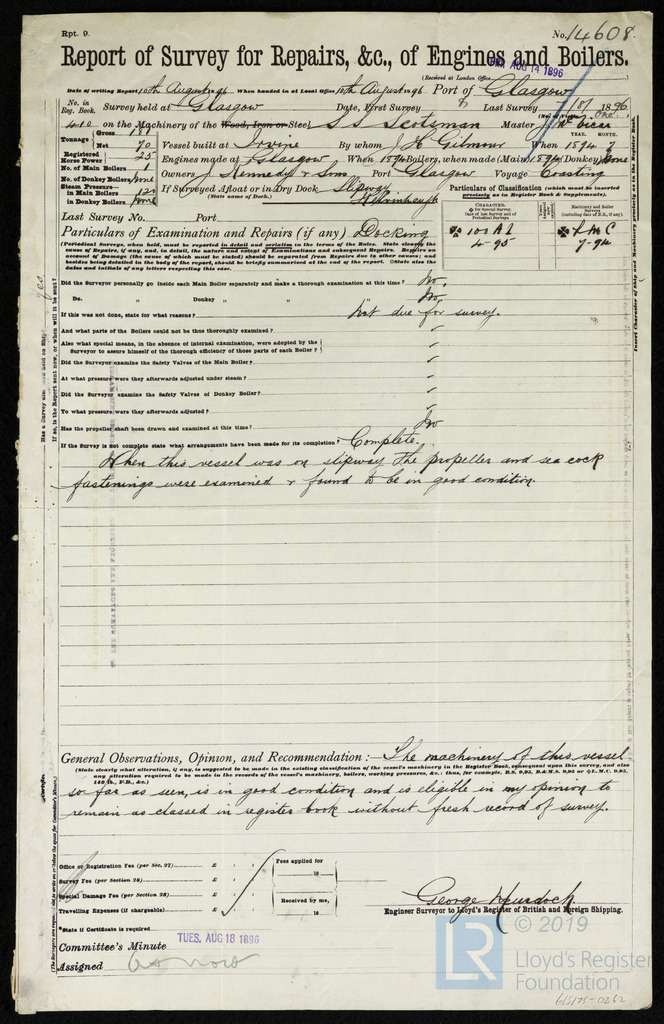 Rpt. 9.
No. 14608.
Report of Survey for Repairs, &c., of Engines and Boilers.
AUG 14 1896
(Received at London Office
Date of writing Report 10th August 96 When handed in at Local Office 10th August 96 Port of Glasgow
No. in Reg. Book. Survey held at Glasgow Date, First Survey 8 Last Survey 7/8/ 1896
(No. of Visits One.)
410 on the Machinery of the Wood, Iron or Steel S S Scotsman Master J. McVicar
Tonnage Gross 188
Net 70 Vessel built at Irvine By whom J H Gilmour When 1894 YEAR. MONTH. 7
Registered Horse Power 25 Engines made at Glasgow When 1894 Boilers, when made (Main) 1894 (Donkey) None
No. of Main Boilers 1
No. of Donkey Boilers None Owners J. Kennedy & Sons Port Glasgow Voyage Coasting
Steam Pressure in Main Boilers 120
in Donkey Boilers None If Surveyed Afloat or in Dry Dock Slipway
(State name of Dock.) Kelvinhaugh
Particulars of Classification (which must be inserted precisely as in Register Book & Supplements).
Last Survey No. Port
CHARACTER.
Machinery and Boiler Surveys
100 A1 LMC
4-95 7-94
Particulars of Examination and Repairs (if any) Docking
(Periodical Surveys, when held, must be reported in detail and seriatim in the terms of the Rules. State clearly the
cause of Repairs, if any, and, in detail, the nature and extent of Examinations and subsequent Repairs. Repairs on
account of Damage (the cause of which must be stated) should be separated from Repairs due to other causes; and
besides being detailed in the body of the report, should be briefly summarised at the end of the report. State also the
dates and initials of any letters respecting this case.
Did the Surveyor personally go inside each Main Boiler separately and make a thorough examination at this time? No.
Do. „ Donkey „ „ „ No.
If this was not done, state for what reasons? Not due for survey.
And what parts of the Boilers could not be thoroughly examined?
Also what special means, in the absence of internal examination, were adopted by the
Surveyor to assure himself of the thorough efficiency of those parts of each Boiler?
Did the Surveyor examine the Safety Valves of the Main Boiler?
At what pressure were they afterwards adjusted under steam?
Did the Surveyor examine the Safety Valves of Donkey Boiler?
To what pressure were they afterwards adjusted?
Has the propeller shaft been drawn and examined at this time? No
If the Survey is not complete state what arrangements have been made for its completion? Complete.
When this vessel was on slipway the propeller and sea cock
fastenings were examined & found to be in good condition.
General Observations, Opinion, and Recommendation:— The machinery of this vessel
(State clearly what alteration, if any, is suggested to be made in the existing classification of the vessel's machinery in the Register Book, consequent upon this survey, and also
any alteration required to be made in the records of the vessel's machinery, boilers, working pressures, &c.: thus, for example, B.S. 9,95, B.&M.S. 9,95 or L.M.C. 9,95,
140 lb., F.D., &c.)
so far as seen, is in good condition and is eligible in my opinion to
remain as classed in register book without fresh record of survey.
Office or Registration Fee (per Sec. 27) £ : :
Survey Fee (per Section 28) £ : :
Special Damage Fee (per Section 28) £ : :
Travelling Expenses (if chargeable) £ : :
Fees applied for
18
Received by me,
18
*State if Certificate is required
George Murdoch
Engineer Surveyor to Lloyd's Register of British and Foreign Shipping.
Committee's Minute TUES. AUG 18 1896
Assigned As now
© 2019
LR
Lloyd's Register
Foundation
6/S175-0262